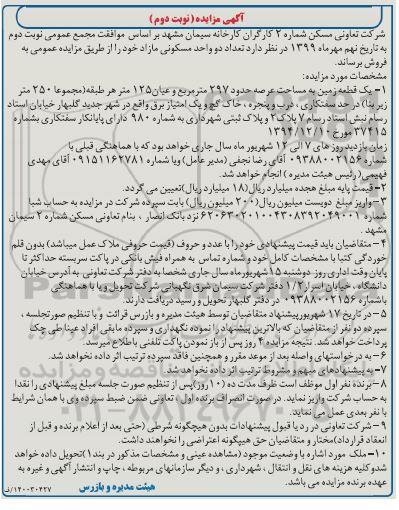 آگهی مزایده (نوبت دوم)
شرکت تعاونی مسکن شماره ۲ کارگران کارخانه سیمان مشهد بر اساس موافقت مجمع عمومی نوبت دوم
به تاریخ نهم مهرماه ۱۳۹۹ در نظر دارد تعداد دو واحد مسکونی مازاد خود را از طریق مزایده عمومی به
فروش برساند.
مشخصات مورد مزایده:
۱- یک قطعه زمین به مساحت عرصه حدود ۲۹۷ مترمربع و عیان ۱۲۵ متر هر طبقه(مجموعا ۲۵۰ متر
زیربنا) در حد سفتکاری، درب و پنجره، خاک گچ و یک امتیاز برق واقع در شهر جدید گلبهار خیابان استاد
رسام نبش استاد رسام ۷ پلاک ۲ و پلاک ثبتی شهرداری به شماره ۹۸۰ دارای پایانکار سفتکاری بشماره
۳۷۴۱۵ مورخ ۱۳۹۴/۱۲/۱۰
زمان بازدید روز های ۷ الی ۱۴ شهریور ماه سال جاری خواهد بود که با هماهنگی قبلی با
شماره ۰۹۳۸۸۰۰۲۱۵۶ آقای رضا نجفی (مدیر عامل) ویا شماره ۰۹۱۵۱۱۶۲۷۸۱ آقای مهدی
فهیمی( رئیس هیئت مدیره ) انجام خواهد شد.
۲- قیمت پایه مبلغ هجده میلیارد ریال(۱۸ میلیارد ریال)تعیین می گردد.
۳- واریز مبلغ دویست میلیون ریال(۲۰۰ میلیون ریال) بابت سپرده شرکت در مزایده به حساب شبا
شماره نزد بانک انصار ، بنام تعاونی مسکن شماره ۲ سیمان
مشهد .
۴- متقاضیان باید قیمت پیشنهادی خود را با عدد و حروف (قیمت حروفی ملاک عمل میباشد) بدون قلم
خوردگی کتبا با مشخصات کامل خود و شماره تماس به همراه فیش بانکی در پاکت سربسته حداکثر تا
پایان وقت اداری روز دوشنبه ۱۵ شهریور ماه سال جاری شخصا به دفتر شرکت تعاونی به آدرس خیابان
دانشگاه ، خیابان اسرار ۱/۲ دفتر شرکت سیمان شرق نگهبانی شرکت تحویل و یا با هماهنگی
باشماره ۰۹۳۸۸۰۰۲۱۵۶ در دفتر گلبهار تحویل و رسید دریافت دارند.
۵- در تاریخ ۱۷ شهریورپیشنهاد متقاضیان توسط هیئت مدیره و بازرس قرائت و با تنظیم صورتجلسه ،
سپرده دو نفر از متقاضیان که بالاترین پیشنهاد را نموده نگهداری و سپرده مابقی افراد عینا طی چک
پرداخت خواهد شد. نتیجه مزایده ۴ روز پس از باز نمودن پاکت تلفنی باطلاع میرسد.
۶- به درخواستهای واصله بعد از موعد مقرر و همچنین فاقد سپرده ترتیب اثر داده نخواهد شد.
۷- به پیشنهادهای مبهم و مشروط ترتیب اثر داده نخواهد شد.
۸- برنده نفر اول موظف است ظرف مدت ده (۱۰ روز) پس از تنظیم صورت جلسه مبلغ پیشنهادی را نقدا
به حساب شرکت واریز نماید. در صورت انصراف برنده اول ، تعاونی ضمن ضبط سپرده وی با همان شرایط
با نفر بعدی عمل می نماید.
۹- شرکت تعاونی در رد یا قبول پیشنهادات بدون هیچگونه شرطی (حتی بعد از اعلام برنده و قبل از
انعقاد قرارداد)مختار و متقاضیان حق هیچگونه اعتراضی را نخواهند داشت.
۱۰- ملک مورد اشاره با وضعیت موجود (مشاهده عینی و مشخصات مذکور در بند ۱) تحویل داده خواهد
شدو کلیه هزینه های نقل و انتقال ، شهرداری ، و دیگر سازمانهای مربوطه ، چاپ و انتشار آگهی و غیره به
عهده برنده مزایده می باشد.
هیئت مدیره و بازرس
۱۴۰۰۳۰۴۲۷/ف